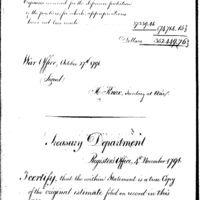 Expenses incurred for the defensive protection
of the frontiers for which appropriations
have not been made.
Dollars
War Office, October 27th 1791.
(Signed)
H. Knox, Secretary at War.
Treasury Department
Register's Office, 4th November 1791.
I certify, that the within Statement is a true Copy
of the original estimate filed on record in this